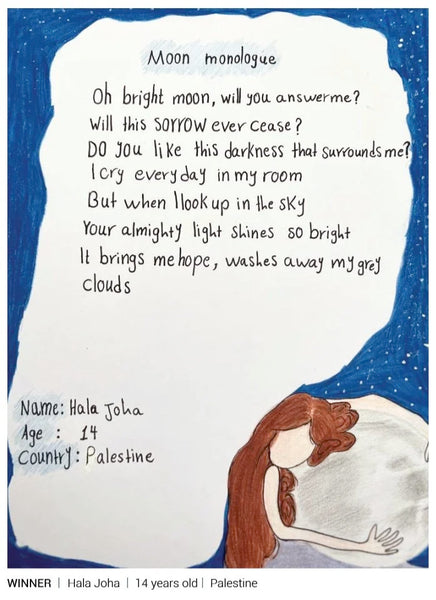 Moon monologue
Oh bright moon, will you answer me?
Will this sorrow ever cease?
Do you like this darkness that surrounds me?
I cry everyday in my room
But when I look up in the sky
Your almighty light shines so bright
It brings me hope, washes away my grey
clouds
Name: Hala Joha
Age : 14
Country: Palestine
WINNER | Hala Joha | 14 years old | Palestine